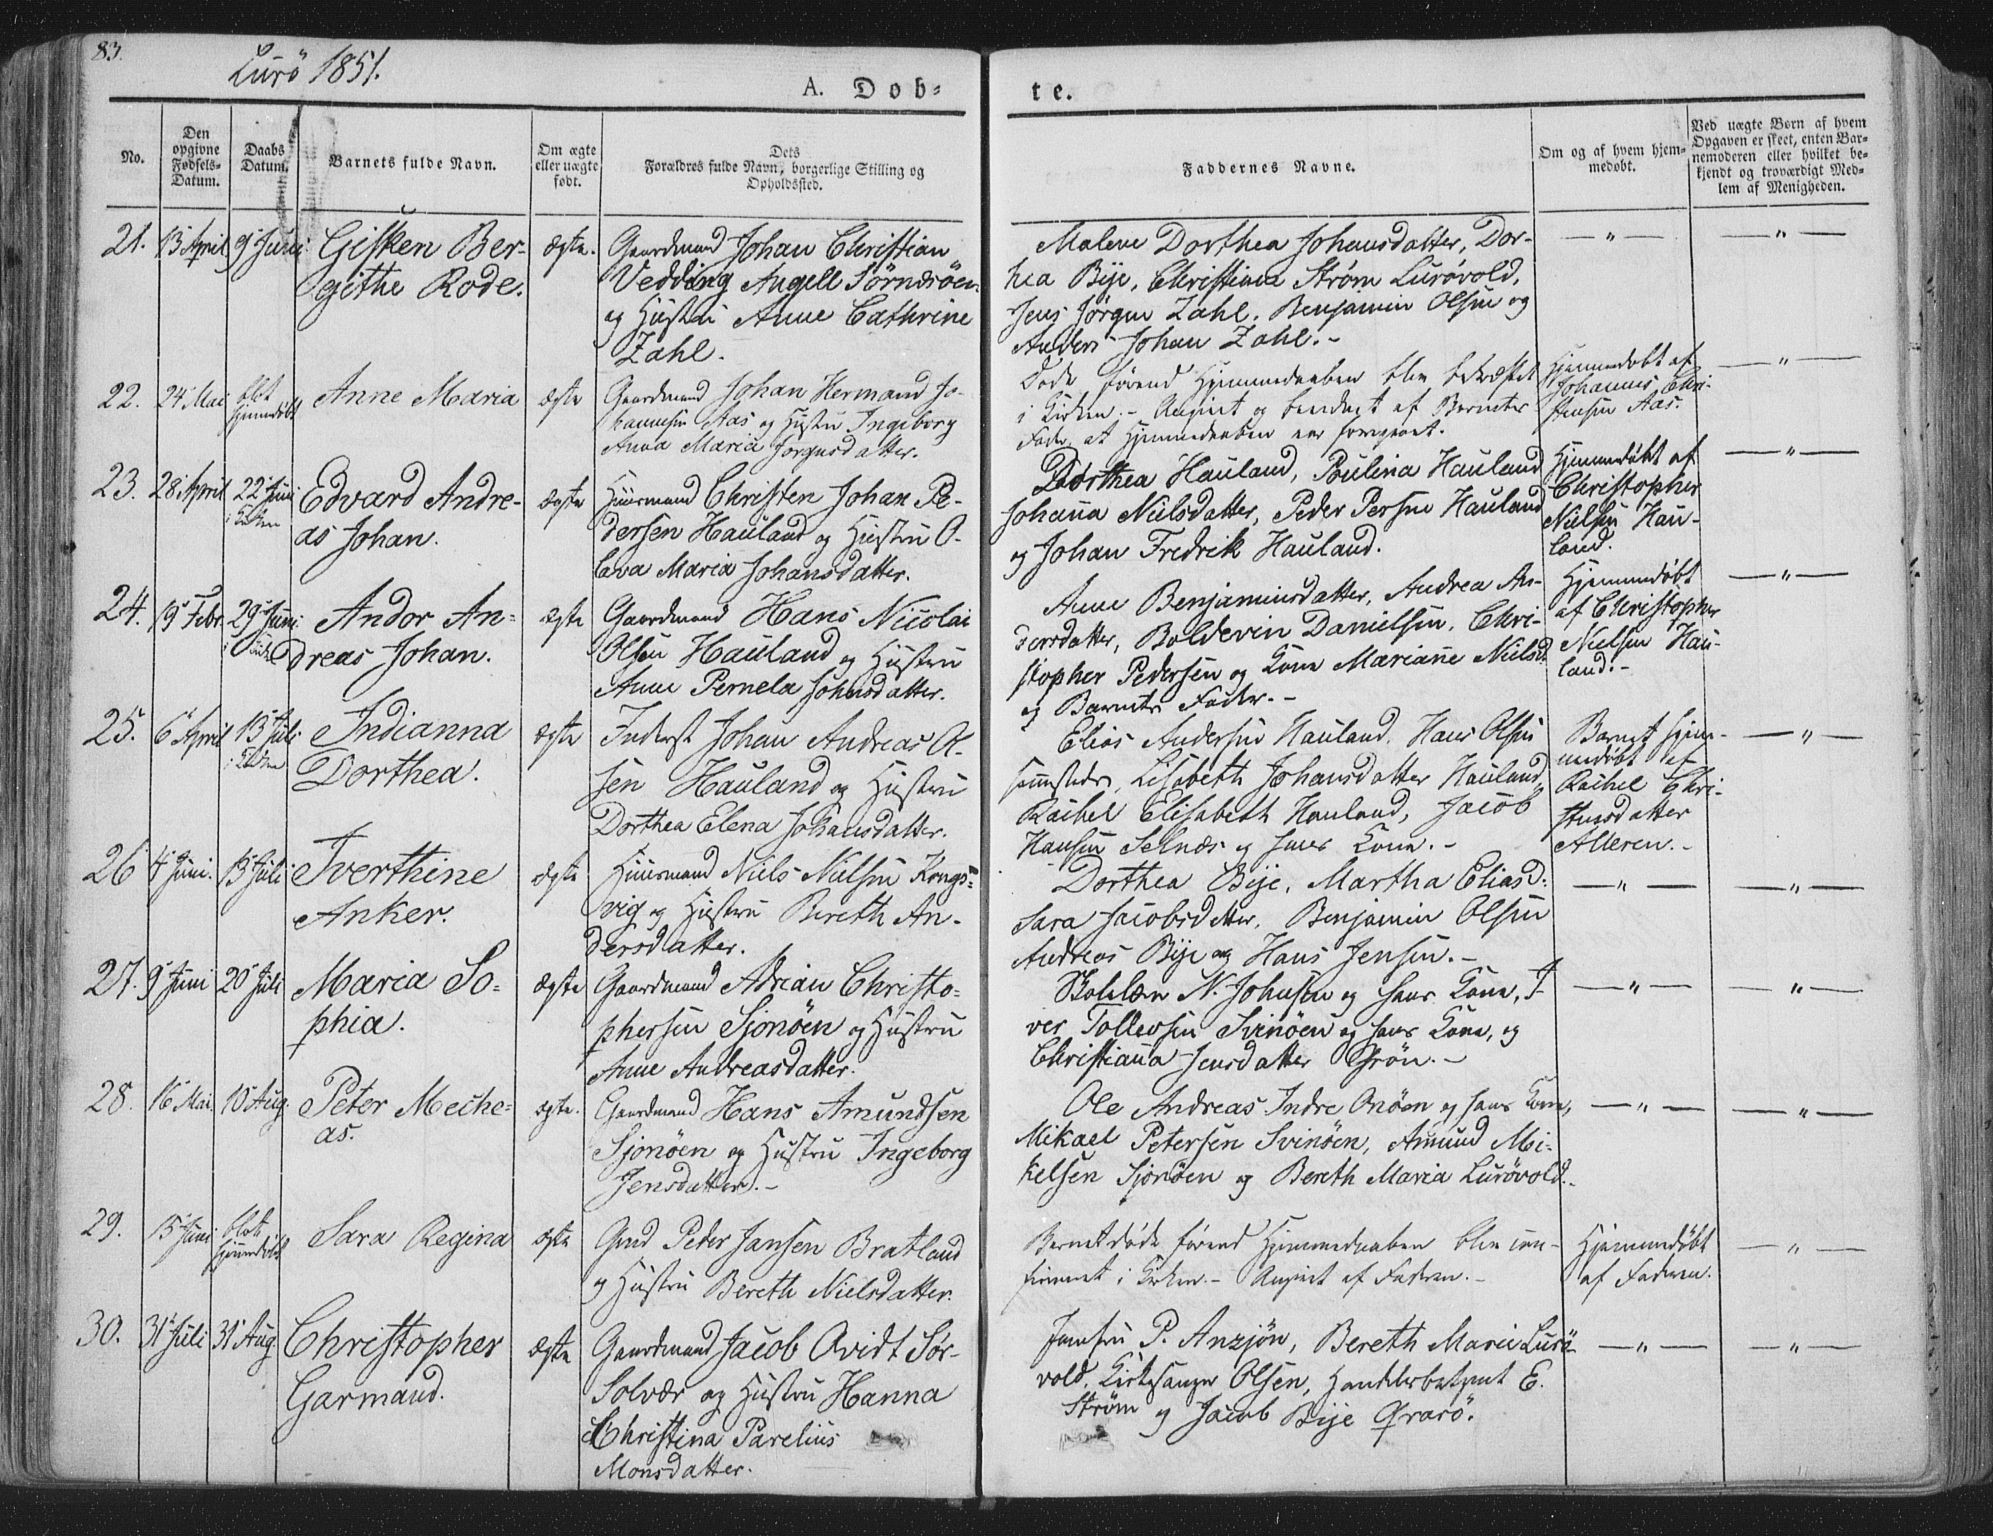 83.
Lurö 1851.
A. Døb-
te.
No.
Den opgivne Fødsels-Datum.
Daabs Datum.
Barnets fulde Navn.
Om ægte eller uægte født.
Dets Forældres fulde Navn, borgerlige Stilling og Opholdssted.
Faddernes Navne.
Om og af hvem hjem-
medøbt.
Ved uægte Børn af hvem
Opgaven er skeet, enten Bar-
nemoderen eller hvilket be-
kjendt og troværdigt Med-
lem af Menigheden.
21. 13 April 9 Juni Gisken Ber- ægte. Gaardmand Johan Christian
githe Rode. Vedding Angell Sörnæröen
og Hustru Anne Cathrine
Zahl.
Malene Dorthea Johansdatter, Dor- — " — — " —
hea Bije, Christiana Strøm Lurövold,
Jens Jörgen Zahl, Benjamin Olsen og
Anders Johan Zahl. -
22. 24 Mai blot hjemmedöbt Anne Maria ægte Gaardmand Johan Hermand Jo-
hannesen Aas og Hustru Ingeborg
Anna Maria Jörgensdatter.
Döde förend Hjemmedaaben blev bekræftet Hjemmedöbt af — " —
i Kirken. - Angivet og bevidnet af Barnets Johannes Chri-
Fader, at Hjemmedaaben var foregaaet. stensen Aas.
23. 28 April 22 Juni i Kirken Edvard Andre- ægte Huusmand Christen Johan Pe-
as Johan. dersen Hauland og Hustru O-
leva Maria Johansdatter.
Dorthea Hauland, Poulina Hauland Hjemmedöbt af — " —
Johanna Nielsdatter, Peder Persen Hauland Christopher
og Johan Fredrik Hauland. Nielsen Hau-
land.
24. 19 Febr. 29 Juni i Kirken Andor An- ægte Gaardmand Hans Nicolai
dreas Johan. Olsen Hauland og Hustru
Anne Pernela Johnsdatter.
Anne Benjaminsdatter, Andrea An- Hjemmedöbt — " —
dersdatter, Boldevin Danielsen, Chri- af Christopher
stopher Pedersen og Kone Marianne Nielsd. Nielsen Hau-
og Barnets Fader. - land. -
25. 6 April 13 Juli i Kirken Indianna ægte Inderst Johan Andreas Ol-
Dorthea. sen Hauland og Hustru
Dorthea Elena Johansdatter.
Elias Andersen Hauland, Hans Olsen Barnet hjem- — " —
sammesteds, Lisabeth Johansdatter Hauland, medöbt af
Rachel Elisabeth Hauland, Jacob Rachel Chri-
Hansen Selnæs og hans Kone. - stensdatter
Alteren. -
26 4 Juni. 13 Juli Iverthine ægte Huusmand Niels Nielsen Kongs-
Anker. vig og Hustru Bereth An-
dersdatter.
Dorthea Bije, Martha Eliasd: — " — — " —
Sara Jacobsdatter, Benjamin Olsen
Andreas Bije og Hans Jensen. -
27. 9 Juni 20 Juli Maria So- ægte Gaardmand Adrian Christo-
phia. phersen Sjonöen og Hustru
Anne Andreasdatter.
N. Johnsen og hans Kone, I- — " — — " —
ver Tollevsen Svinöen og hans Kone, og
Christianna Jensdatter Grön. -
28. 16 Mai 10 Aug. Peter Meche- ægte. Gaardmand Hans Amundsen
as. Sjonöen og Hustru Ingeborg
Jensdatter. -
Ole Andreas Indre Onöen og hans Kone, — " — — " —
Mikael Petersen Svinöen, Amund Mi-
kelsen Sjonöen og Bereth Maria Lurövold.
29. 15 Juni blot hjemmedöbt Sara Regina ægte Gmd Peder Jansen Bratland
og Hustru Bereth Nielsdatter.
Barnet döde förend Hjemmedaaben blev con- Hjemmedöbt — " —
firmeret i Kirken. - Angivet af Faderen. - af Faderen.
30. 31 Juli 31 Aug. Christopher ægte Gaardmand Jacob Qvidt Sör-
Garmand. Solvær og Hustru Hanna
Christina Parelius
Monsdatter.
Jomfru P. Anzjön, Bereth Maria Lurö- — " — — " —
vold, Kirkesanger Olsen, Handelsbetjent E.
Ström og Jacob Bije Qvarö.